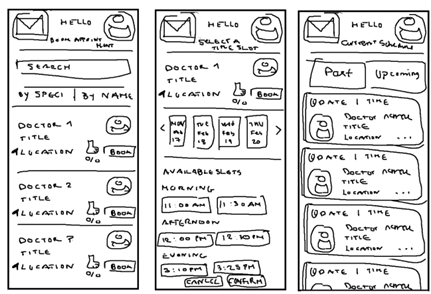 HELLO
BOOK APPOINTMENT
SEARCH
BY SPECI
BY NAME
DOCTOR 1
TITLE
LOCATION
0/0
BOOK
DOCTOR 2
TITLE
LOCATION
0/0
BOOK
DOCTOR ?
TITLE
LOCATION
0/0
BOOK
HELLO
SELECT A
TIME SLOT
DOCTOR 1
TITLE
LOCATION
0/0
BOOK
< MON TUE WET THU >
Feb Feb Feb Feb
17 18 19 20
AVAILABLE SLOTS
MORNING
11:00 AM
11:30 AM
AFTERNOON
12:00 PM
12:30 PM
EVENING
3:10 PM
3:25 PM
CANCEL
CONFIRM
HELLO
CURRENT SCHEDULE
Past
Upcoming
DATE | TIME
DOCTOR NAME
TITLE
LOCATION ...
DATE | TIME
DOCTOR NAME
TITLE
LOCATION ...
DATE | TIME
DOCTOR NAME
TITLE
LOCATION ...